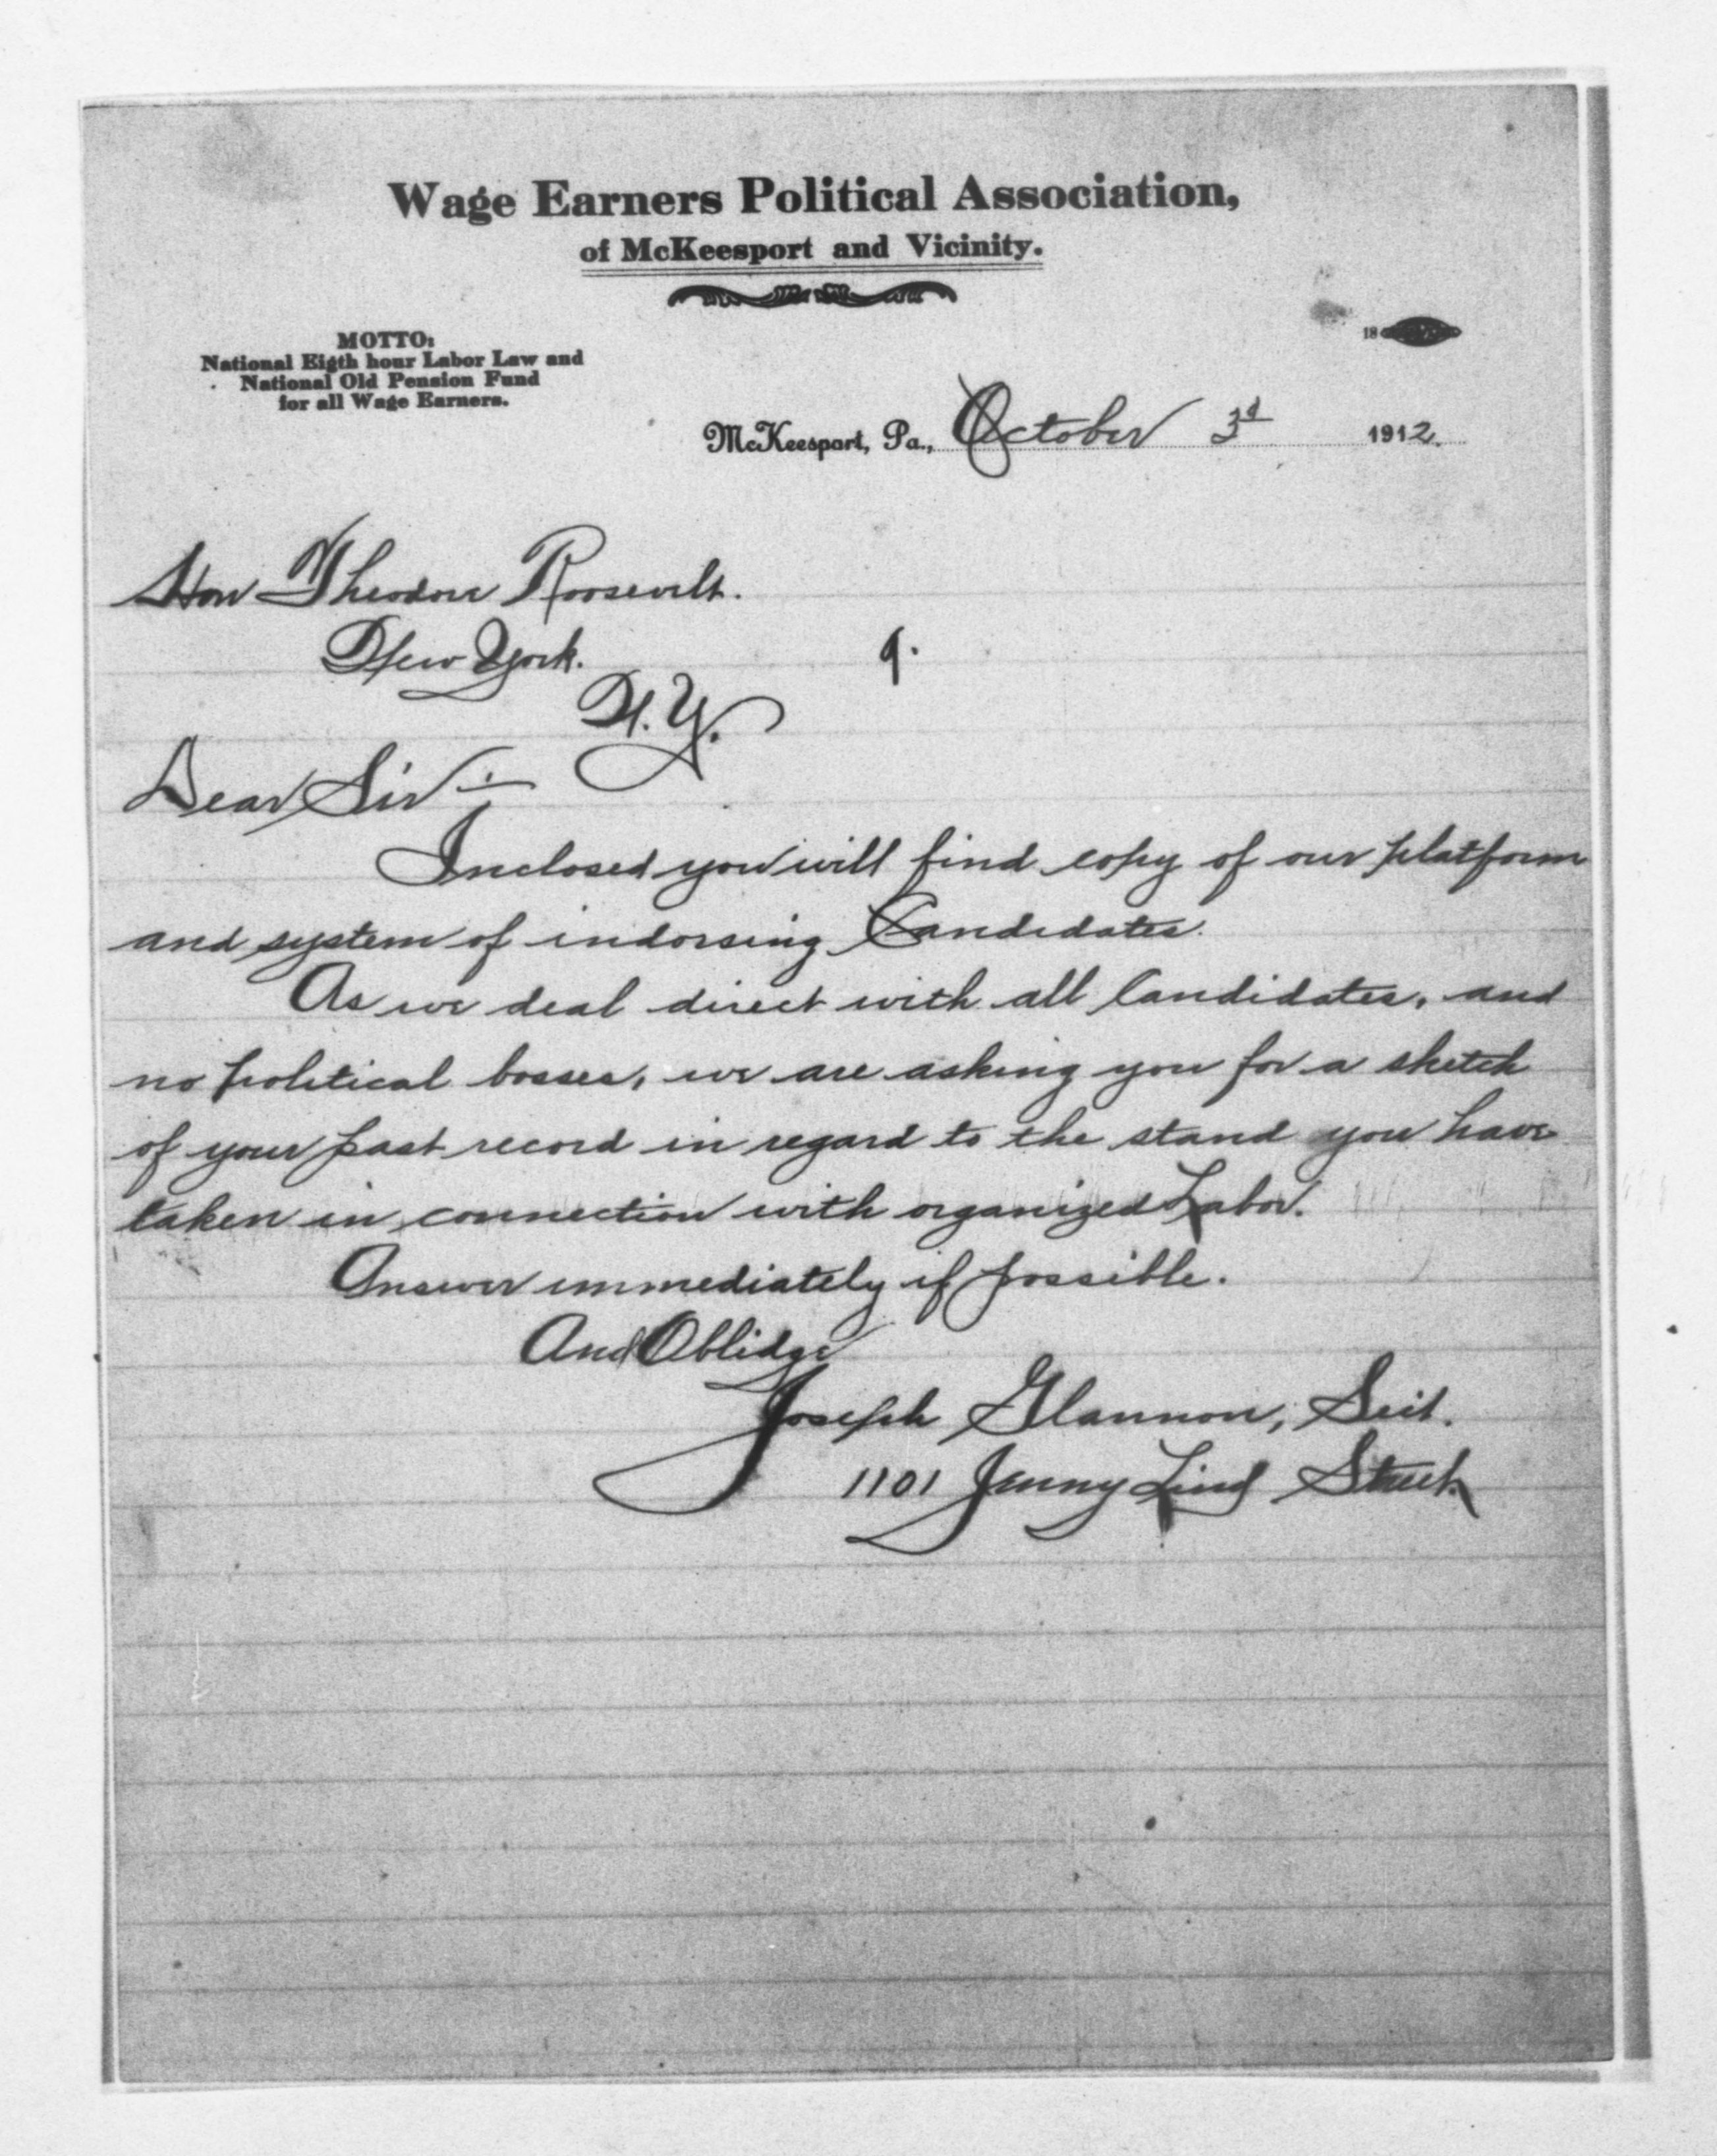 Wage Earners Political Association,
of McKeesport and Vicinity.
MOTTO:
National Eigth hour Labor Law and
National Old Pension Fund
for all Wage Earners.
18
McKeesport, Pa., October 3d 1912.
Hon Theodore Roosevelt.
New York.
9.
N.Y.
Dear Sir:-
Inclosed you will find copy of our platform
and system of indorsing Candidates.
As we deal direct with all Candidates, and
no political bosses, we are asking you for a sketch
of your past record in regard to the stand you have
taken in connection with organized Labor.
Answer immediately if possible.
And Oblidge
Joseph Glannon, Sect.
1101 Jenny Lind Street.